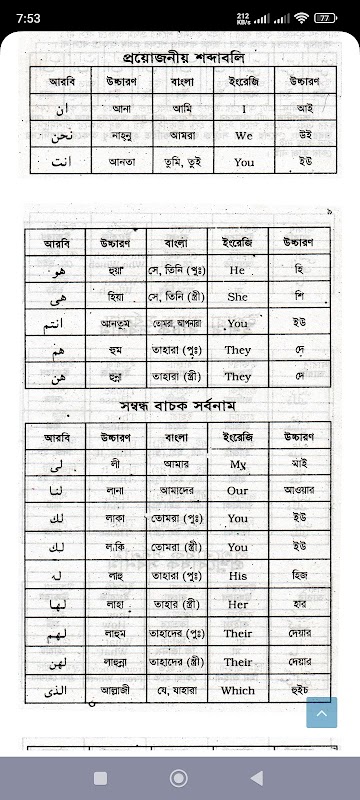 7:53 212 KB/s 77
প্রয়োজনীয় শব্দাবলি
আরবি উচ্চারণ বাংলা ইংরেজি উচ্চারণ
ان আনা আমি I আই
نحن নাহনু আমরা We উই
انت আনতা তুমি, তুই You ইউ
৯
আরবি উচ্চারণ বাংলা ইংরেজি উচ্চারণ
هو হুয়া সে, তিনি (পুঃ) He হি
هى হিয়া সে, তিনি (স্ত্রী) She শি
انتم আনতুম তোমরা, আপনারা You ইউ
هم হুম তাহারা (পুঃ) They দে
هن হুন্না তাহারা (স্ত্রী) They দে
সম্বন্ধ বাচক সর্বনাম
আরবি উচ্চারণ বাংলা ইংরেজি উচ্চারণ
لى লী আমার My মাই
لنا লানা আমাদের Our আওয়ার
لك লাকা তোমরা (পুঃ) You ইউ
لك লাকি তোমরা (স্ত্রী) You ইউ
له লাহু তাহারা (পুঃ) His হিজ
لها লাহা তাহার (স্ত্রী) Her হার
لهم লাহুম তাহাদের (পুঃ) Their দেয়ার
لهن লাহুন্না তাহাদের (স্ত্রী) Their দেয়ার
الذى আল্লাজী যে, যাহারা Which হুইচ